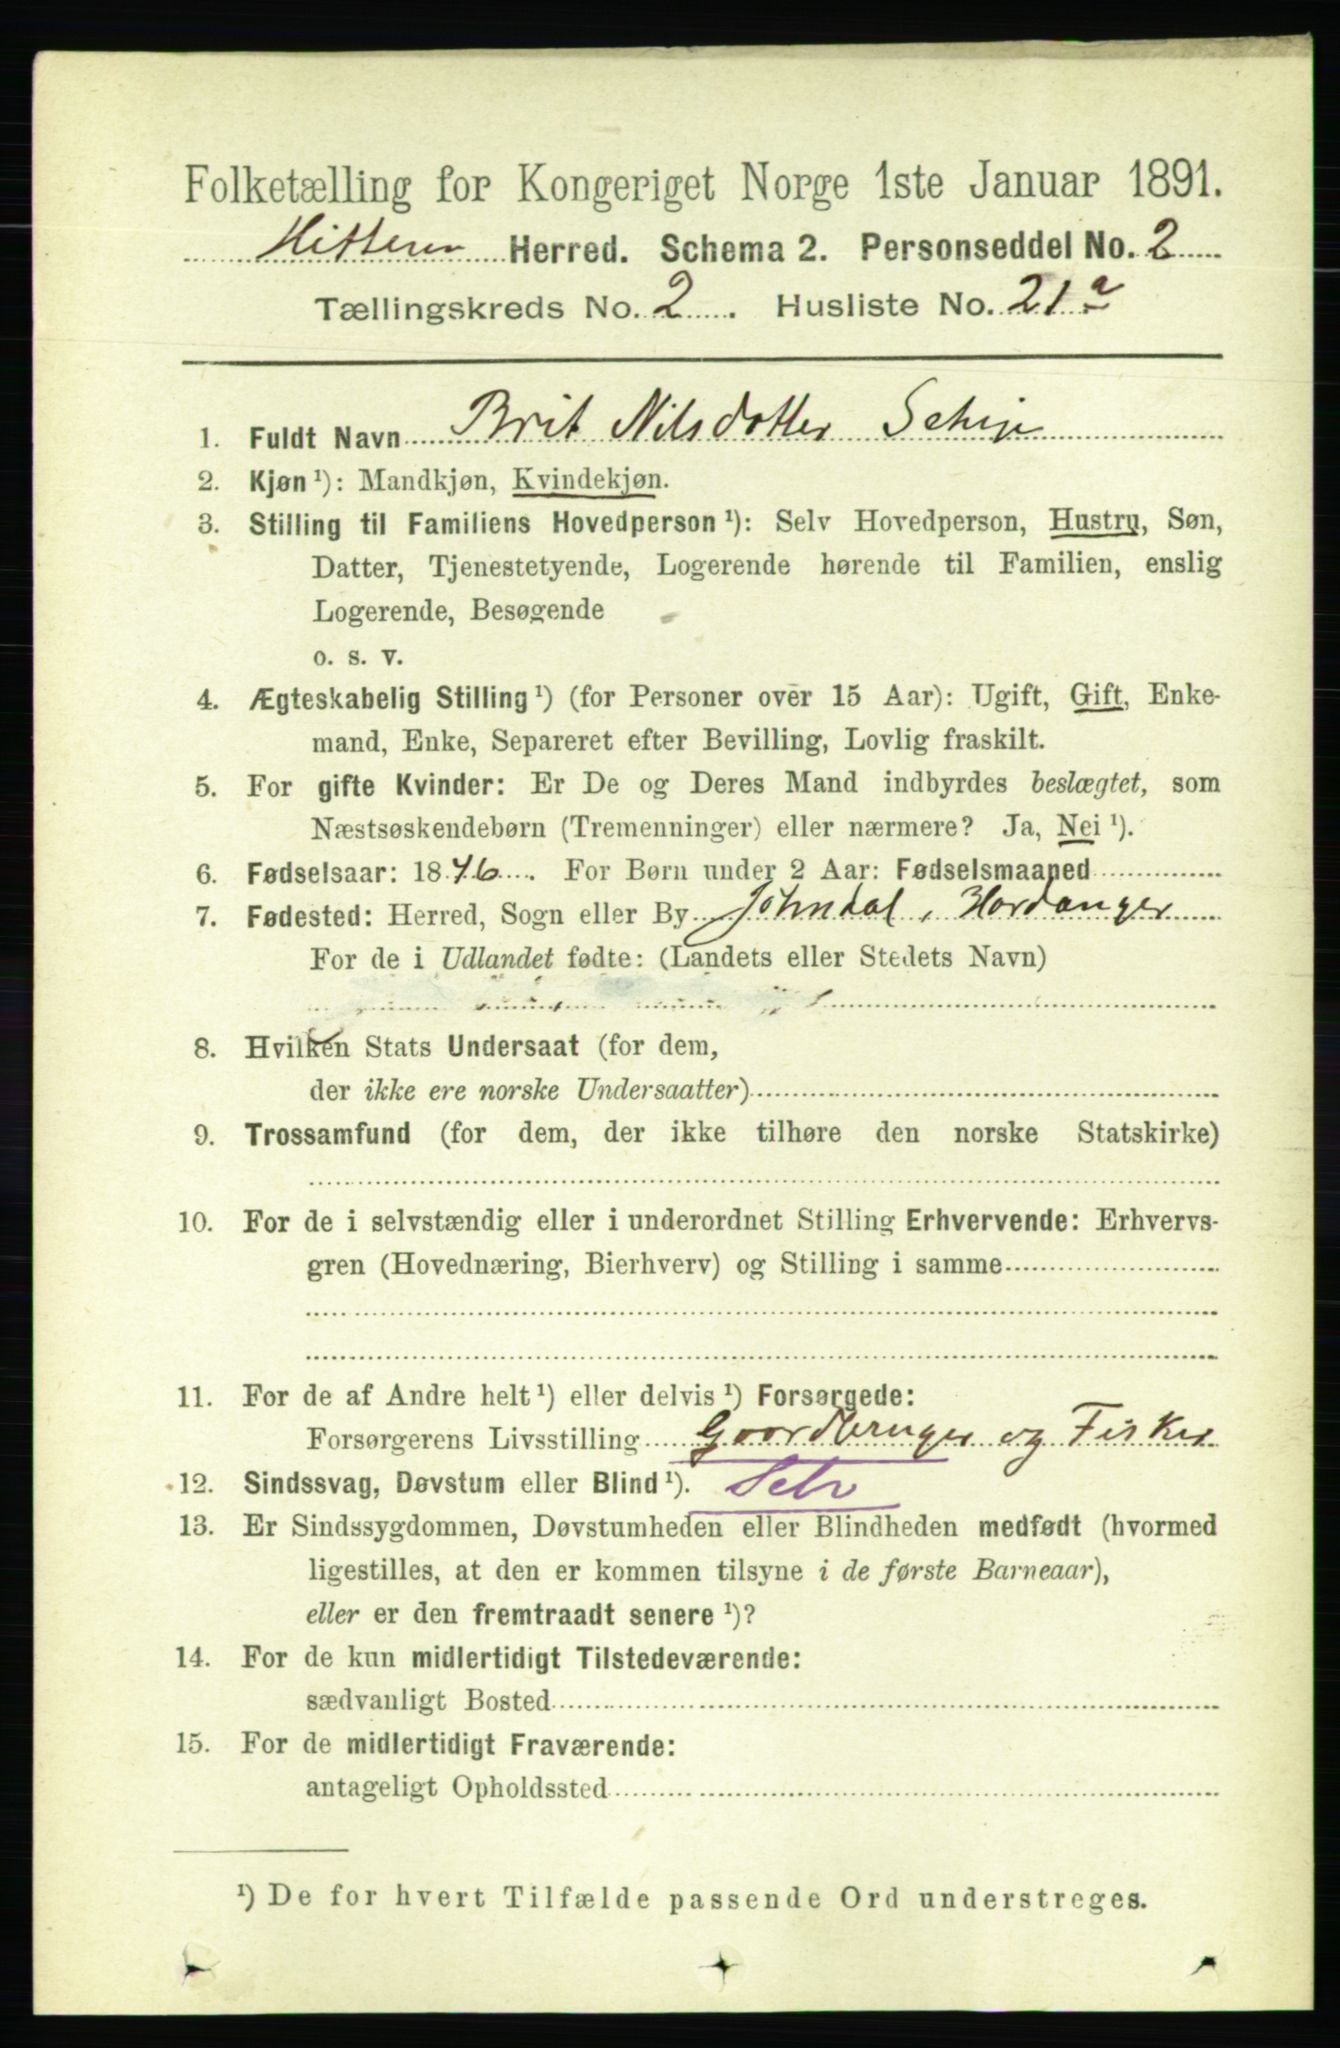 Folketælling for Kongeriget Norge 1ste Januar 1891.
Hitteren Herred. Schema 2. Personseddel No. 2
Tællingskreds No. 2. Husliste No. 21a
1. Fuldt Navn Brit Nilsdotter
2. Kjøn ¹): Mandkjøn, Kvindekjøn.
3. Stilling til Familiens Hovedperson ¹): Selv Hovedperson, Hustru, Søn,
Datter, Tjenestetyende, Logerende hørende til Familien, enslig
Logerende, Besøgende
o. s. v.
4. Ægteskabelig Stilling ¹) (for Personer over 15 Aar): Ugift, Gift, Enke-
mand, Enke, Separeret efter Bevilling, Lovlig fraskilt.
5. For gifte Kvinder: Er De og Deres Mand indbyrdes beslægtet, som
Næstsøskendebørn (Tremenninger) eller nærmere? Ja, Nei ¹).
6. Fødselsaar: 1846. For Børn under 2 Aar: Fødselsmaaned
7. Fødested: Herred, Sogn eller By Johndal, Hardanger
For de i Udlandet fødte: (Landets eller Stedets Navn)
8. Hvilken Stats Undersaat (for dem,
der ikke ere norske Undersaatter)
9. Trossamfund (for dem, der ikke tilhøre den norske Statskirke)
10. For de i selvstændig eller i underordnet Stilling Erhvervende: Erhvervs-
gren (Hovednæring, Bierhverv) og Stilling i samme
11. For de af Andre helt ¹) eller delvis ¹) Forsørgede:
Forsørgerens Livsstilling Gaardbruger og Fisker
12. Sindssvag, Døvstum eller Blind ¹). Selv
13. Er Sindssygdommen, Døvstumheden eller Blindheden medfødt (hvormed
ligestilles, at den er kommen tilsyne i de første Barneaar),
eller er den fremtraadt senere ¹)?
14. For de kun midlertidigt Tilstedeværende:
sædvanligt Bosted
15. For de midlertidigt Fraværende:
antageligt Opholdssted
¹) De for hvert Tilfælde passende Ord understreges.